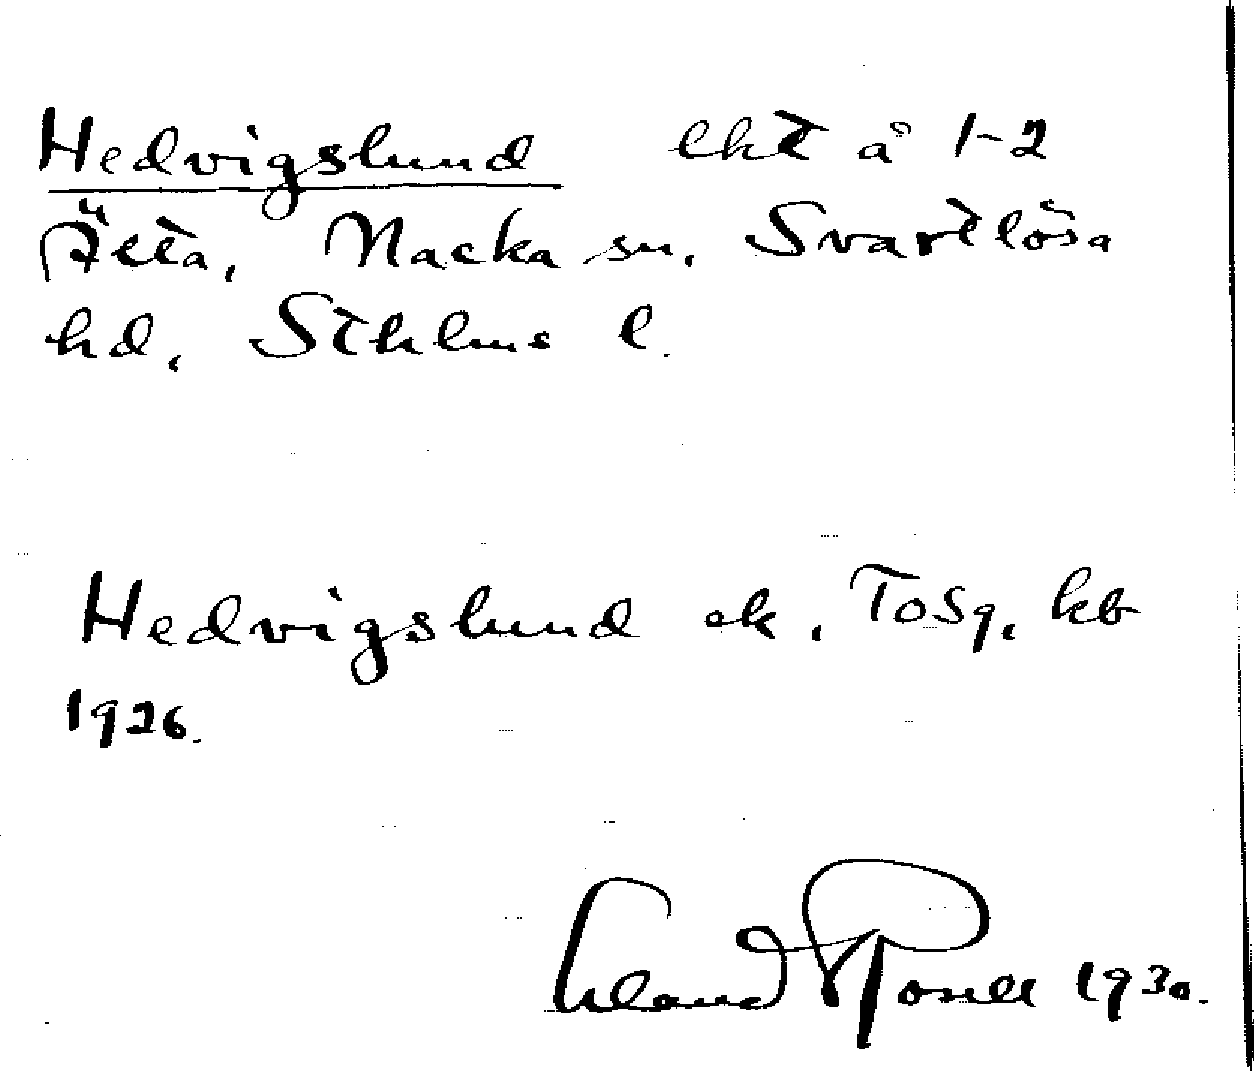 Hedvigslund lht å 1-2
Älta, Nacka sn. Svartlösa
hd, Sthlms l.
Hedvigslund ek, ToSq, kb
1926.
Erland Rosell 1930.